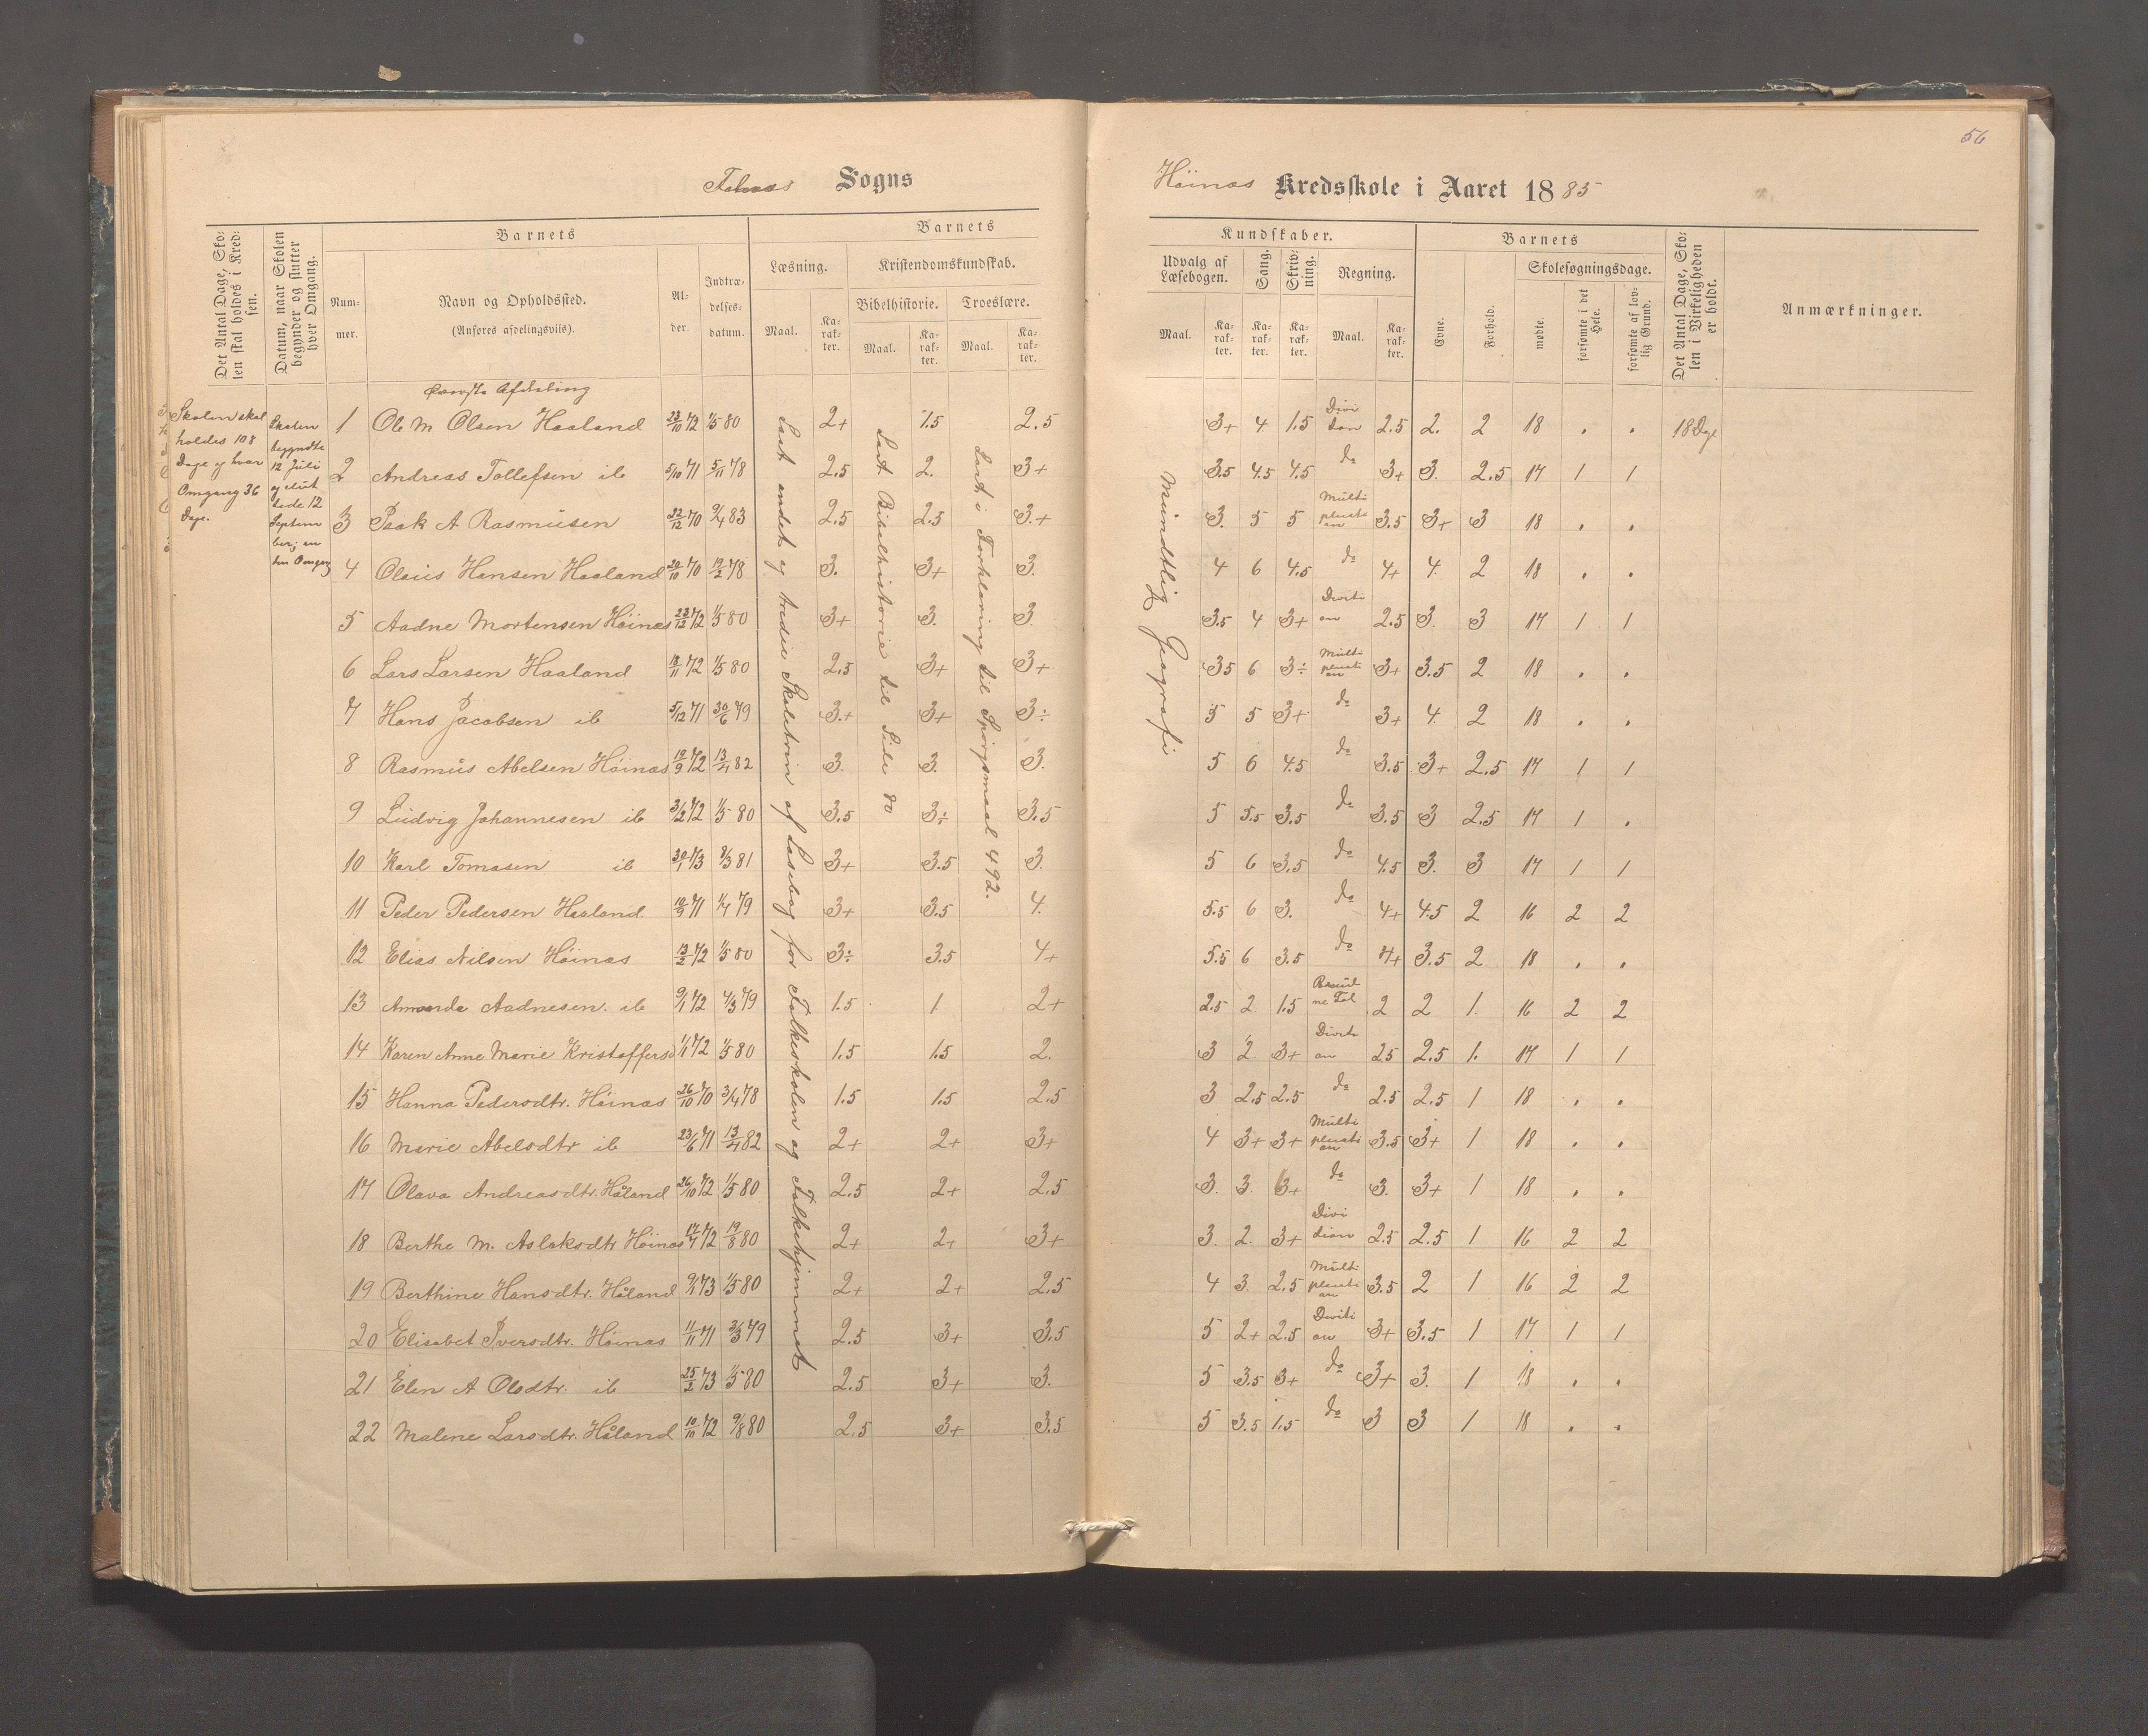 56
Sogns
Höinæs Kredsskole i Aaret 1885
Det Antal Dage, Sko-
len skal holdes i Kred-
sen.
Datum, naar Skolen
begynder og slutter
hver Omgang.
Barnets
Num-
mer.
Navn og Opholdssted.
(Anføres afdelingsviis).
Al-
der.
Indtræ-
delses-
datum.
Barnets
Læsning.
Maal.
Ka-
rak-
ter.
Kristendomskundskab.
Bibelhistorie.
Maal.
Ka-
rak-
ter.
Troeslære.
Maal.
Ka-
rak-
ter.
Kundskaber.
Udvalg af
Læsebogen.
Maal.
Ka-
rak-
ter.
Sang.
Ka-
rak-
ter.
Skriv-
ning.
Ka-
rak-
ter.
Regning.
Maal.
Ka-
rak-
ter.
Barnets
Evne.
Forhold.
Skolesøgningsdage.
mødte.
forsømte i det
Hele.
forsømte af lov-
lig Grund.
Det Antal Dage, Sko-
len i Virkeligheden
er holdt.
Anmærkninger.
Afdeling
Skolen skal
holdes 108
Dage og hver
Omgang 36
Dage.
Skolen
begyndte
12 Juli
og slut
tede 12
Septem
ber; en
ten Omgang
Læst andet og tredie Skoletrin af Læsebog for Folkeskolen og Folkehjemmet
Læst Bibelhistorie til Side 80
Læst i Forklaring til Spörgsmaal 492.
Mundtlig Geografi
1 Ole M Olsen Haaland 23/10 72 1/5 80 2+ 1.5 2.5 3+ 4 1.5 Divi
sion 2.5 2. 2 18 . . 18 Dage
2 Andreas Tollefsen ib 5/10 71 5/11 78 2.5 2. 3+ 3.5 4.5 4.5 do 3+ 3. 2.5 17 1 1
3 Isak A Rasmusen 22/12 70 9/4 83 2.5 2.5 3.+ 3. 5 5 Multi
plicati
on 3.5 3+ 3 18 . .
4 Olaus Hansen Haaland 20/10 70 19/2 78 3. 3+ 3. 4 6 4.5 do 4+ 4. 2 18 . .
5 Aadne Mortensen Höinæs 23/12 72 1/5 80 3+ 3. 3. 3.5 4 3+ Diviti
on 2.5 3. 3 17 1 1
6 Lars Larsen Haaland 18/11 72 1/5 80 2.5 3+ 3+ 3.5 6 3÷ Multi
plicati
on 3+ 3.5 2 18 . .
7 Hans Jacobsen ib 5/12 71 30/6 79 3.+ 3+ 3÷ 5 5 3+ do 3+ 4. 2 18 . .
8 Rasmus Abelsen Höinæs 19/9 72 13/4 82 3. 3. 3. 5 6 4.5 do 3.5 3+ 2.5 17 1 1
9 Ludvig Johannesen ib 3/2 72 1/5 80 3.5 3÷ 3.5 5 5.5 3.5 do 3.5 3 2.5 17 1 .
10 Karl Tomasen ib 30/1 73 8/3 81 3+ 3.5 3. 5 6 3.5 do 4.5 3. 3 17 1 1
11 Peder Pedersen Haaland. 10/9 71 1/4 79 3+ 3.5 4. 5.5 6 3. do 4+ 4.5 2 16 2 2
12 Elias Nilsen Höinæs 12/2 72 1/5 80 3÷ 3.5 4+ 5.5 6 3.5 do 4+ 3.5 2 18 . .
13 Amanda Aadnesen. ib 9/1 72 4/3 79 1.5 1 2+ 2.5 2 1.5 2 2 1. 16 2 2
14 Karen Anne Marie Kristoffersd 1/1 72 1/5 80 1.5 1.5 2. 3 2. 3+ Diviti
on 2.5 2.5 1. 17 1 1
15 Hanna Pedersdtr. Höinæs 26/10 70 3/4 78 1.5 1.5 2.5 3 2.5 2.5 do 2.5 2.5 1 18 . .
16 Marie Abelsdtr ib 23/6 71 13/4 82 2+ 2+ 3+ 4 3+ 3+ Multi
plicati
on 3.5 3+ 1 18 . .
17 Olava Andreasdtr. Håland 26/10 72 1/5 80 2.5 2+ 2.5 3. 3. 3+ do 3. 3+ 1 18 . .
18 Berthe M. Aslaksdtr Höinæs 17/7 72 19/8 80 2+ 2+ 3+ 3. 2. 3+ Divi
sion 2.5 2.5 1 16 2 2
19 Berthine Hansdtr. Håland 9/4 73 1/5 80 2+ 2+ 2.5 4 3. 2.5 Multi
plicati
on 3.5 2 1 16 2 2
20 Elisabet Iversdtr. Höinæs 11/11 71 3/3 79 2.5 3+ 3.5 5 2+ 2.5 Diviti
on 3+ 3.5 1 17 1 1
21 Elen A Olsdtr. ib 25/2 73 1/5 80 2.5 3+ 3. 5 3.5 3+ do 3+ 3. 1 18 . .
22 Malene Larsdtr. Håland 10/10 72 9/8 80 2.5 3+ 3.5 5 3.5 1.5 do 3 3 1 18 . .